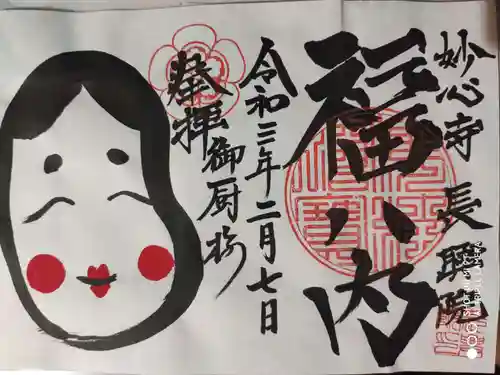 妙心寺 長興院
福ハ内
令和三年二月七日
奉拝 御厨